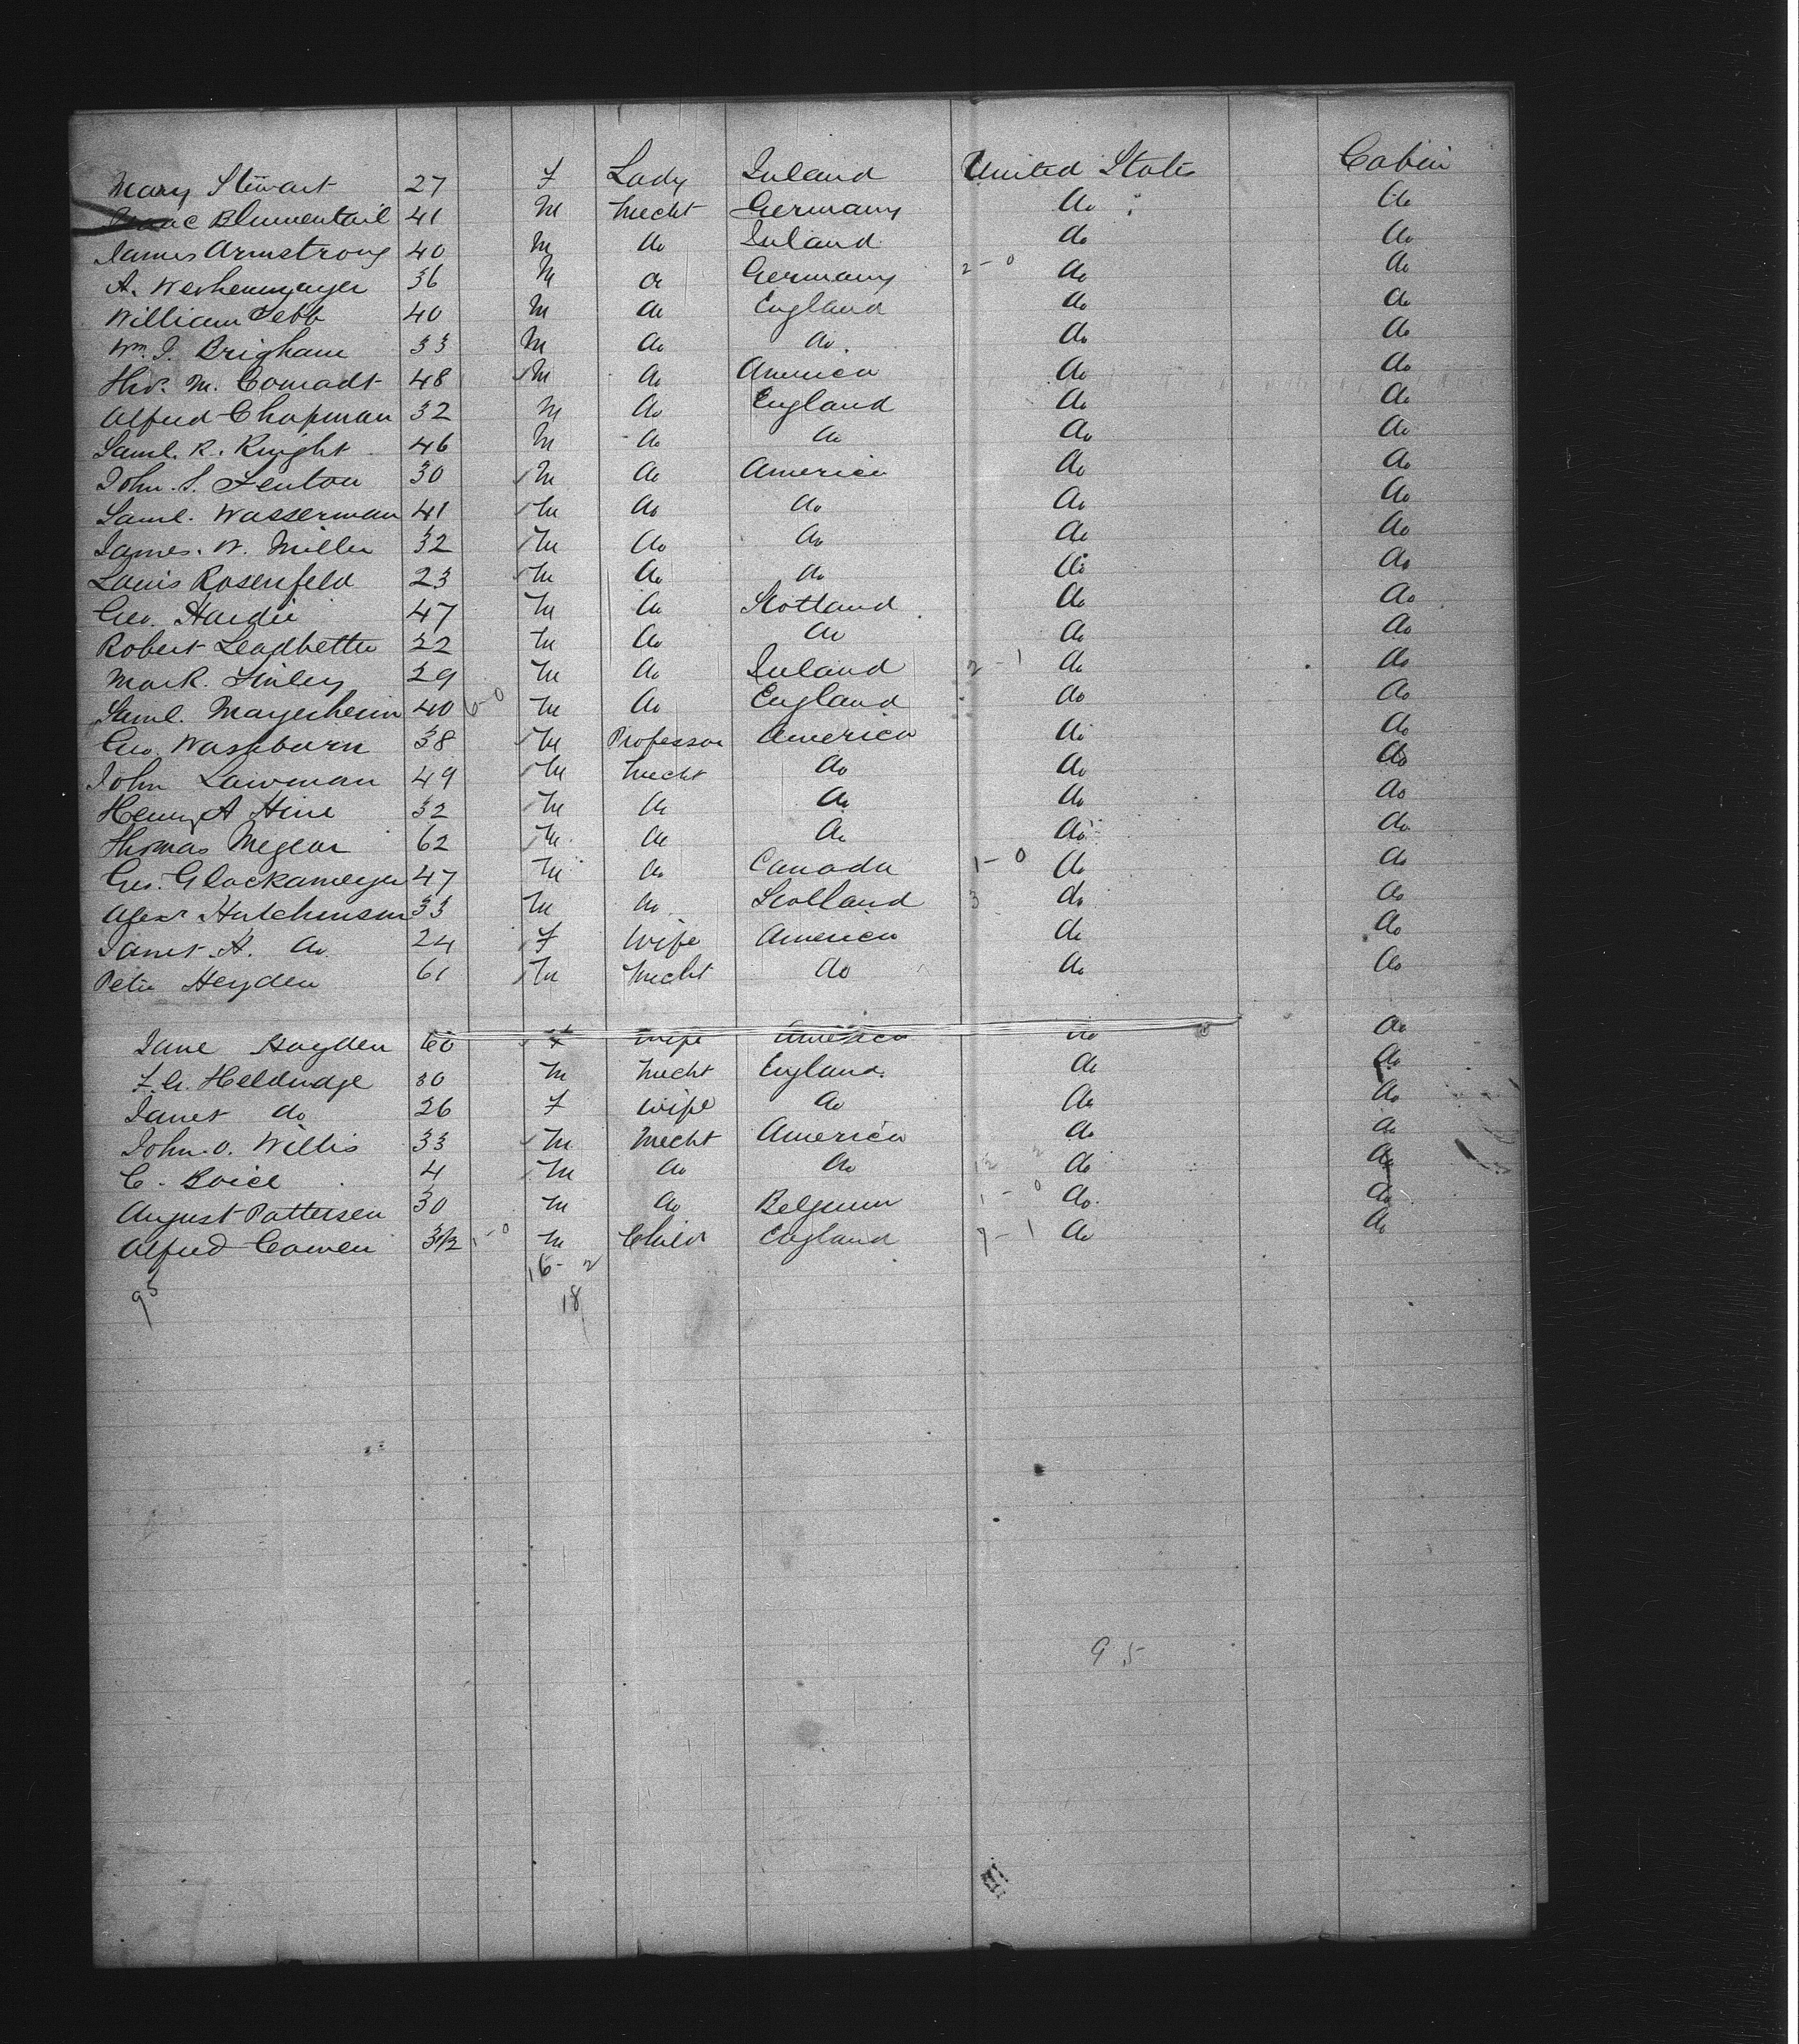 Mary Stewart 27 F Lady Ireland United States Cabin
Isaac Blumentail 41 M Mecht Germany do do
James Armstrong 40 M do Ireland do do
A. Werhenmayer 36 M do Germany 2-0 do do
William Tebb 40 M do England do do
Wm. J. Brigham 33 M do do. do do
Thos. M. Conradt 48 M do America do do
Alfred Chapman 32 M do England do do
Saml. R. Knight 46 M do do do do
John. S. Fenton 30 M do America do do
Saml. Wasserman 41 M do do do do
James. W. Miller 32 M do do do do
Louis Rosenfeld 23 M do do do do
Geo. Hardie 47 M do Scotland do do
Robert Leadbetter 22 M do do do do
Mark. Finley 29 M do Ireland 2-1 do do
Saml. Mayerheim 40 6-0 M do England do do
Geo. Washburn 38 M Professor America do do
John Lawman 49 M Mecht do do do
Henry A Hine 32 M do do do do
Thomas Megear 62 M do do do do
Geo. Glackameyer 47 M do Canada 1-0 do do
Alexr Hutchinson 33 M do Scotland 3 do do
Janet. H. do 24 F Wife America do do
Peter Heyden 61 M Mecht do do do
Jane Hayden 60 F Wife America do do
F. G. Heldredge 30 M Mecht England. do do
Janet do 26 F Wife do do do
John. O. Willis 33 M Mecht America do do
C. Boice 4 M do do 12 2 do do
August Pattersen 30 M do Belgium 1-0 do. do
Alfred Cowen 3 1/2 1-0 M Child England 7-1 do do
16-2
95 18
95